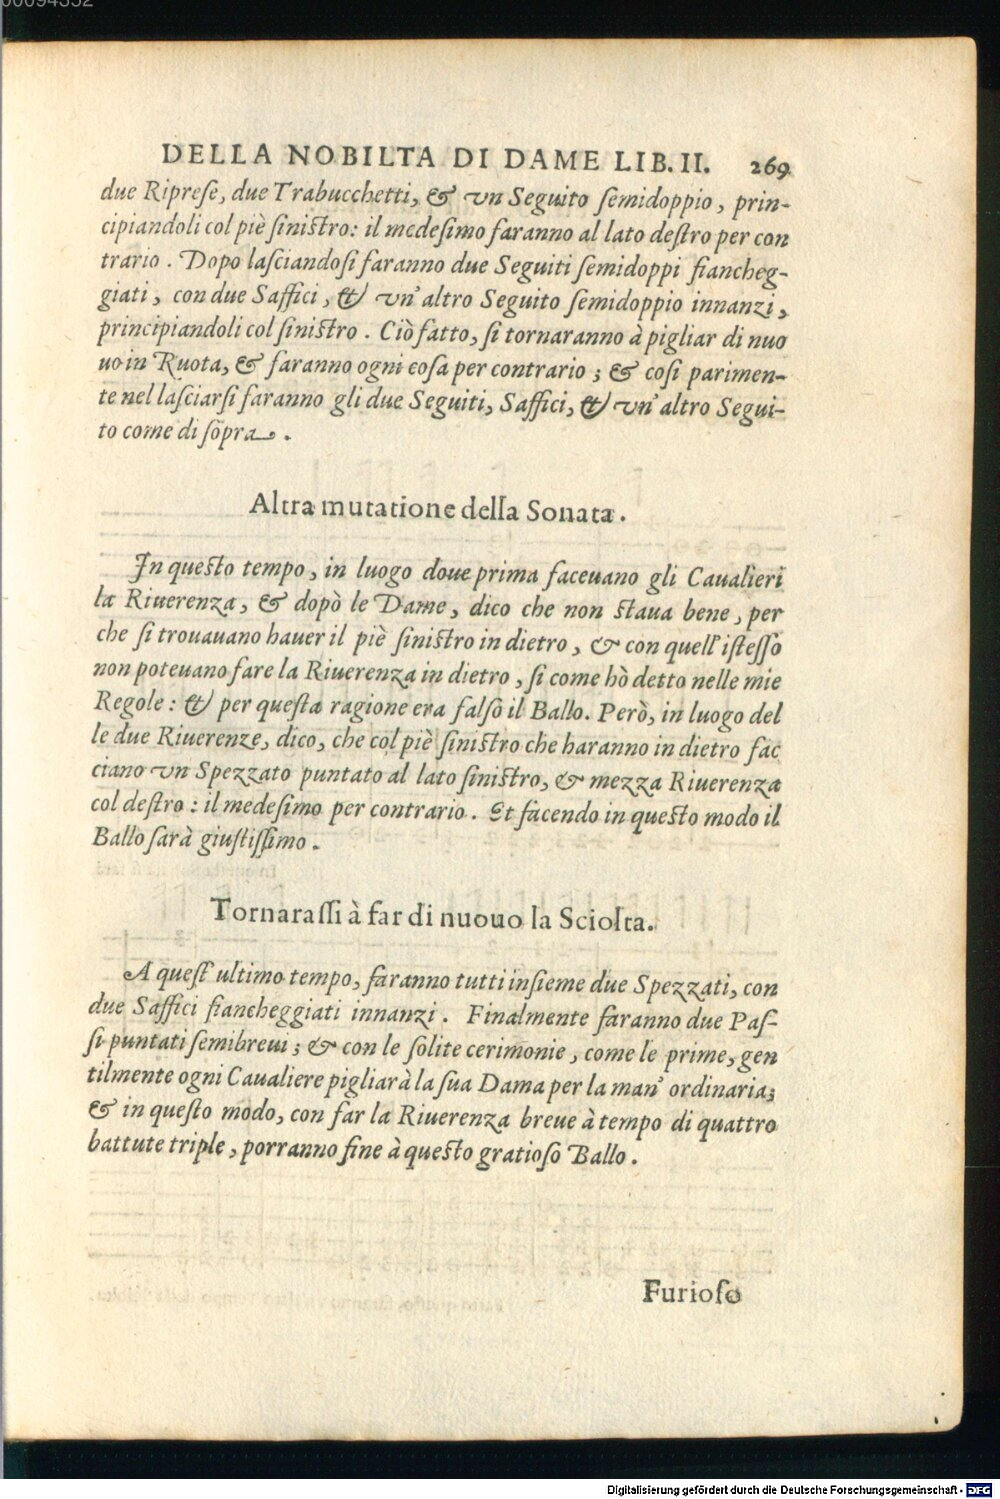 00094352
DELLA NOBILTA DI DAME LIB. II. 269
due Ripreſe, due Trabucchetti, & vn Seguito ſemidoppio, prin-
cipiandoli col piè ſiniſtro: il medeſimo faranno al lato deſtro per con
trario. Dopo laſciandoſi faranno due Seguiti ſemidoppi fiancheg-
giati, con due Saffici, & vn'altro Seguito ſemidoppio innanzi,
principiandoli col ſiniſtro. Ciò fatto, ſi tornaranno à pigliar di nuo
uo in Ruota, & faranno ogni coſa per contrario; & coſi parimen-
te nel laſciarſi faranno gli due Seguiti, Saffici, & vn'altro Segui-
to come di ſopra.
Altra mutatione della Sonata.
In queſto tempo, in luogo doue prima faceuano gli Caualieri
la Riuerenza, & dopò le Dame, dico che non ſtaua bene, per
che ſi trouauano hauer il piè ſiniſtro in dietro, & con quell'iſteſſo
non poteuano fare la Riuerenza in dietro, ſi come hò detto nelle mie
Regole: & per queſta ragione era falſo il Ballo. Però, in luogo del
le due Riuerenze, dico, che col piè ſiniſtro che haranno in dietro fac
ciano vn Spezzato puntato al lato ſiniſtro, & mezza Riuerenza
col deſtro: il medeſimo per contrario. Et facendo in queſto modo il
Ballo ſarà giuſtiſſimo.
Tornaraſſi à far di nuouo la Sciolta.
A queſt'ultimo tempo, faranno tutti inſieme due Spezzati, con
due Saffici fiancheggiati innanzi. Finalmente faranno due Paſ-
ſi puntati ſemibreui; & con le ſolite cerimonie, come le prime, gen
tilmente ogni Caualiere pigliarà la ſua Dama per la man' ordinaria;
& in queſto modo, con far la Riuerenza breue à tempo di quattro
battute triple, porranno fine à queſto gratioſo Ballo.
Furioſo
Digitalisierung gefördert durch die Deutsche Forschungsgemeinschaft - DFG